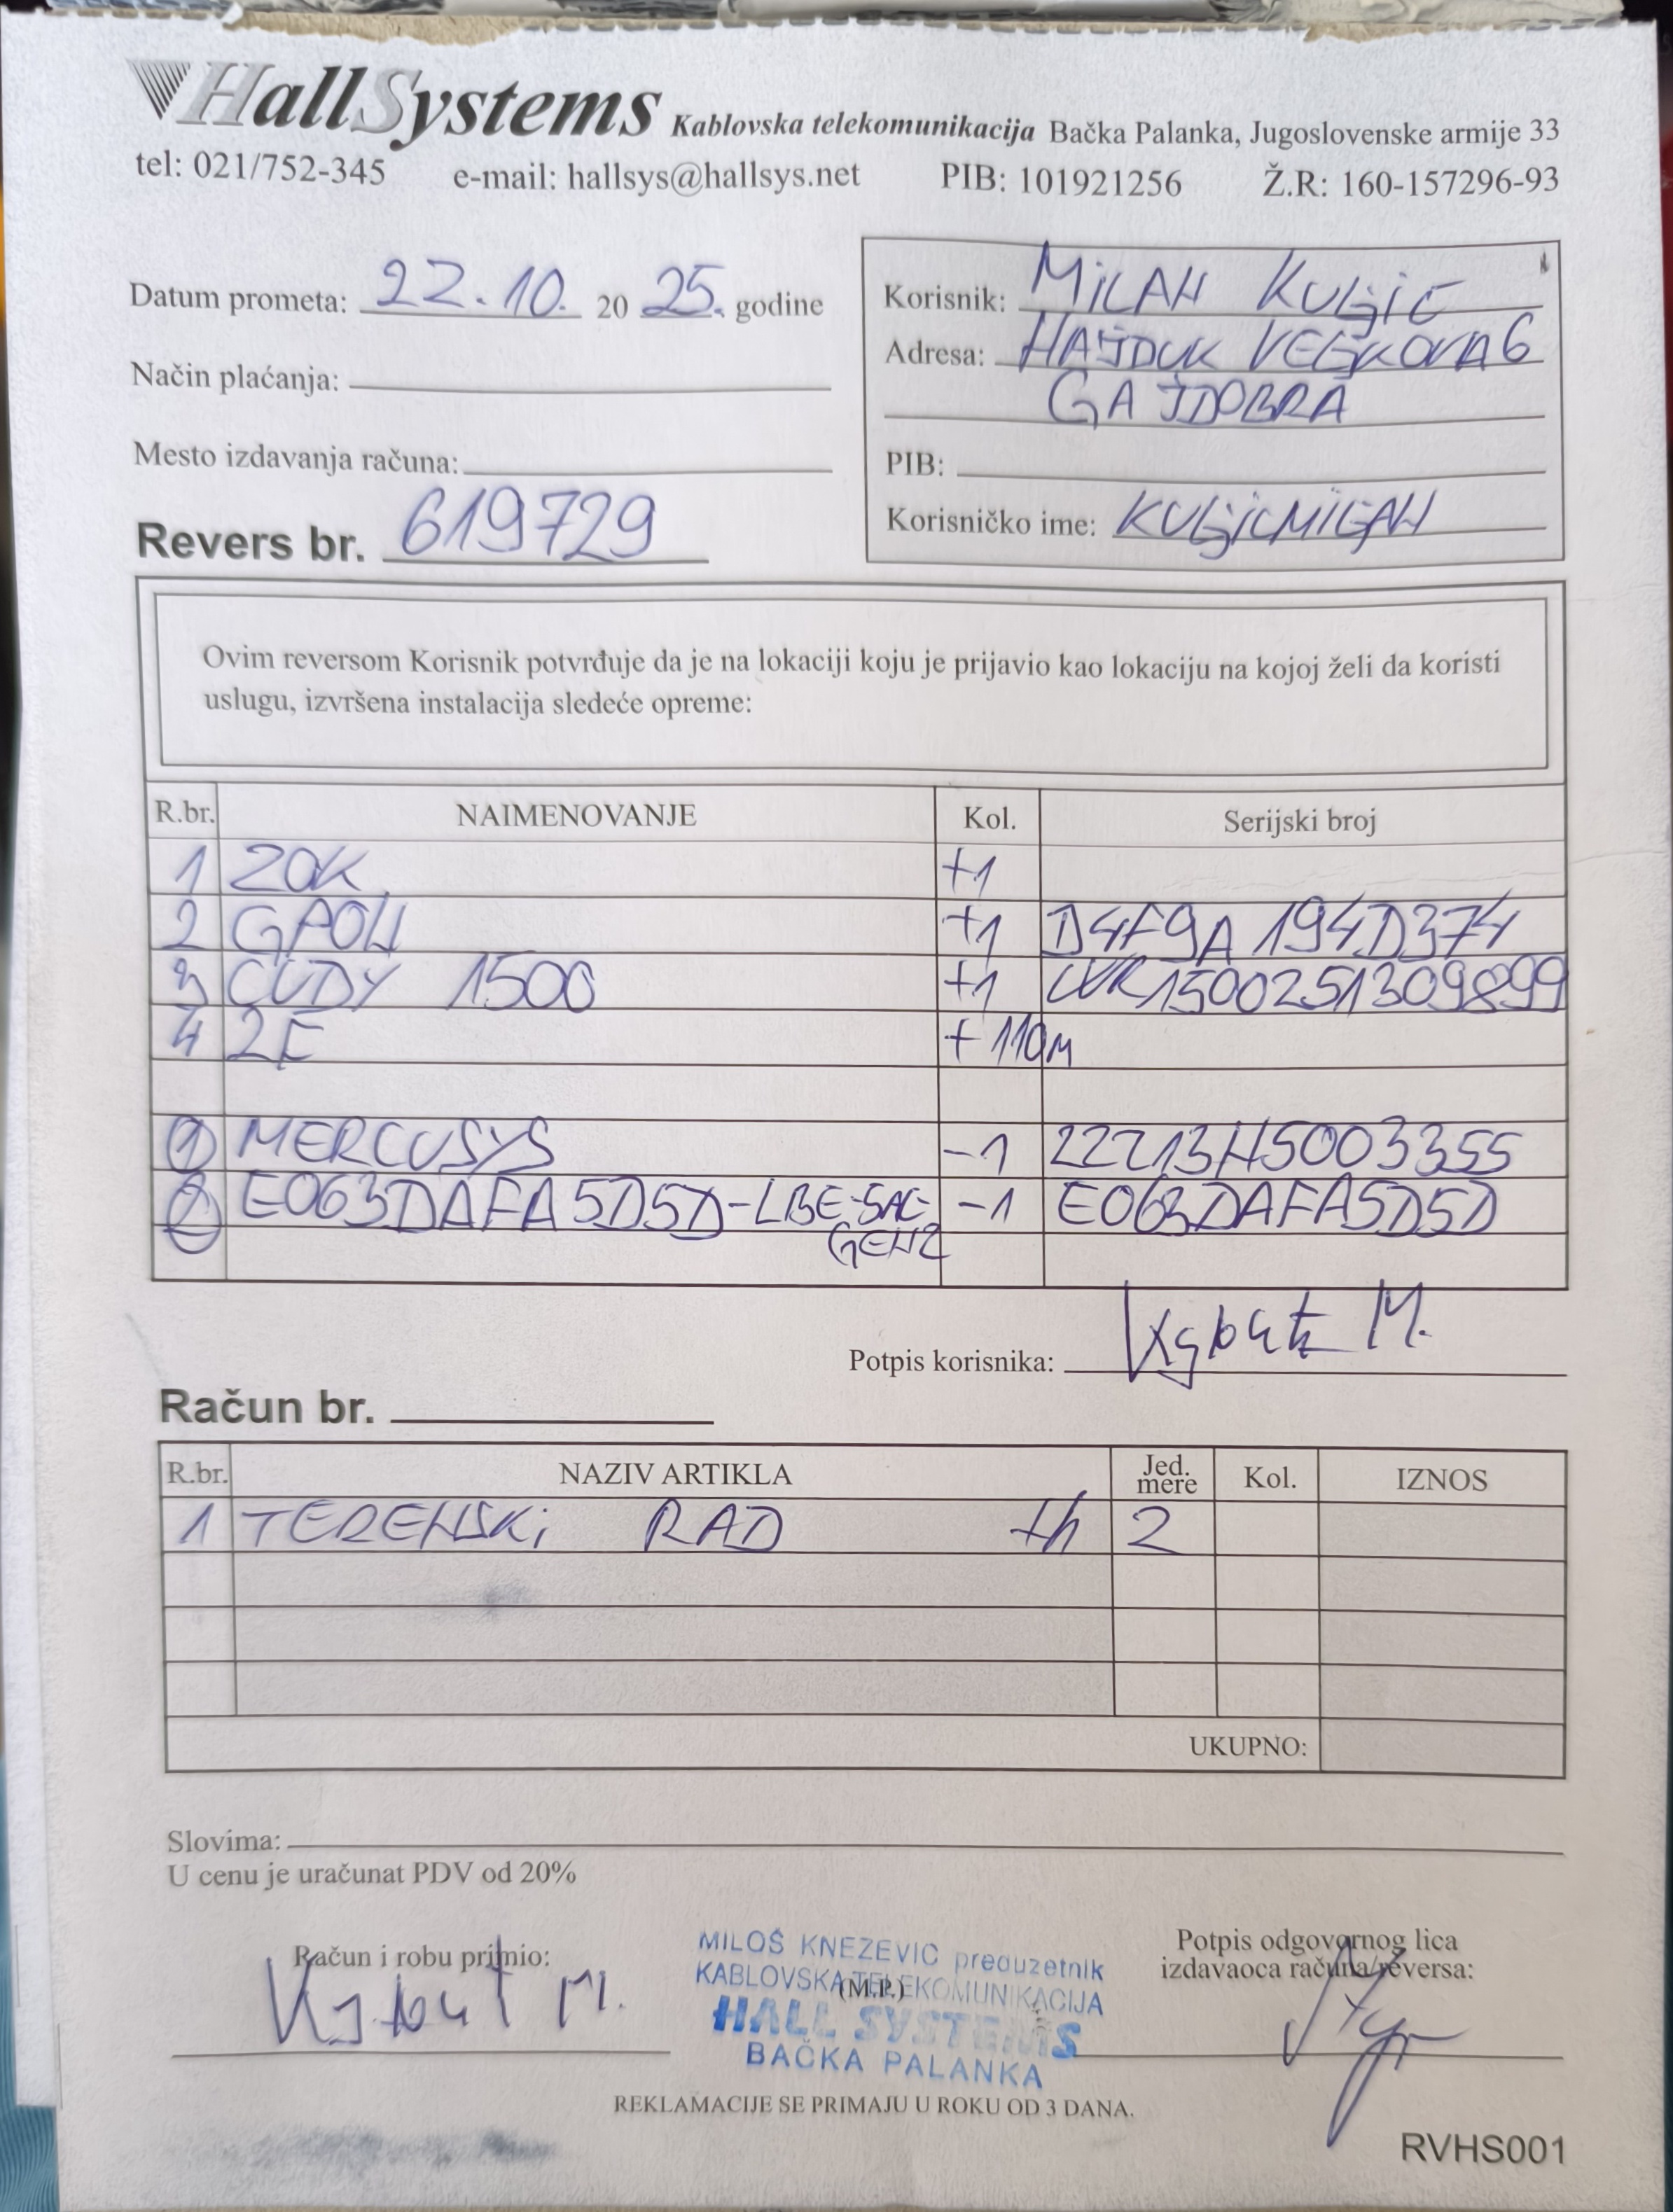 HallSystems Kablovska telekomunikacija Bačka Palanka, Jugoslovenske armije 33
tel: 021/752-345 e-mail: hallsys@hallsys.net PIB: 101921256 Ž.R: 160-157296-93
Datum prometa: 22.10. 20 25. godine
Način plaćanja:
Mesto izdavanja računa:
Revers br. 619729
Korisnik: MILAN KULJIĆ
Adresa: HAJDUK VELJKOVA 6
GAJDOBRA
PIB:
Korisničko ime: KULJICMILAN
Ovim reversom Korisnik potvrđuje da je na lokaciji koju je prijavio kao lokaciju na kojoj želi da koristi
uslugu, izvršena instalacija sledeće opreme:
R.br. NAIMENOVANJE Kol. Serijski broj
1 ZOK +1
2 GPON +1 D4F9A194D374
3 CUDY 1500 +1 WR1500251309899
4 2F + 110M
1 MERCUSYS -1 22213H5003355
2 E063DAFA5D5D-LBE-5AC- -1 E063DAFA5D5D
GEN2
Potpis korisnika: M.
Račun br.
R.br. NAZIV ARTIKLA Jed. mere Kol. IZNOS
1 TERENSKI RAD 2
UKUPNO:
Slovima:
U cenu je uračunat PDV od 20%
Račun i robu primio: M.
MILOŠ KNEZEVIC preduzetnik
KABLOVSKA TELEKOMUNIKACIJA
(M.P.)
HALL SYSTEMS
BAČKA PALANKA
Potpis odgovornog lica
izdavaoca računa/reversa:
REKLAMACIJE SE PRIMAJU U ROKU OD 3 DANA.
RVHS001